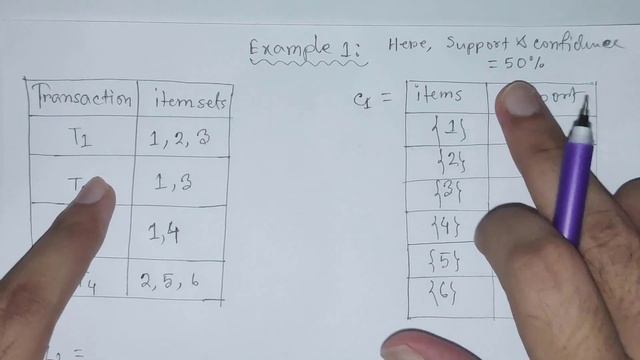 Example 1: Here, Support & confidence
= 50%
Transaction itemsets
T1 1, 2, 3
1, 3
1, 4
2, 5, 6
C1 =
items
{1}
{2}
{3}
{4}
{5}
{6}